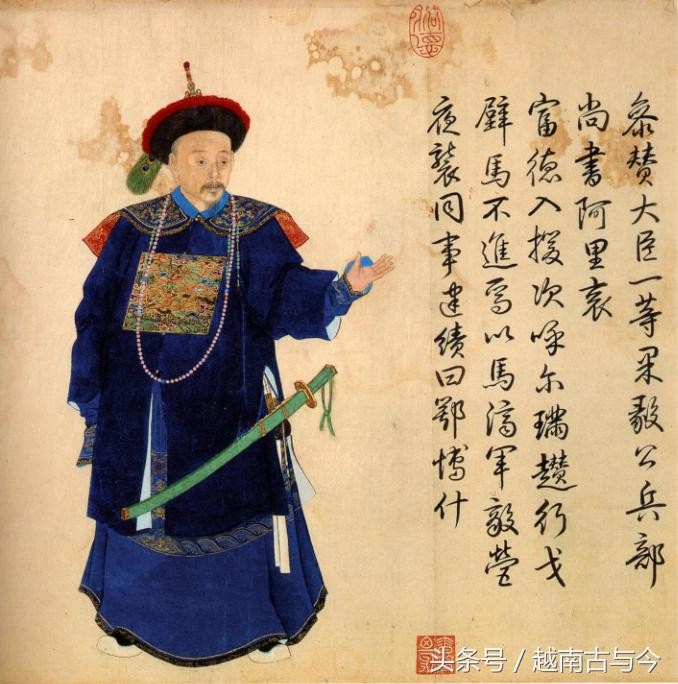 叅賛大臣一等果毅公兵部
尚書阿里衮
富德入援次呼尔璊趲行戈
壁馬不進焉以馬濟軍敵營
夜襲同事建績曰鄂博什
头条号 / 越南古与今